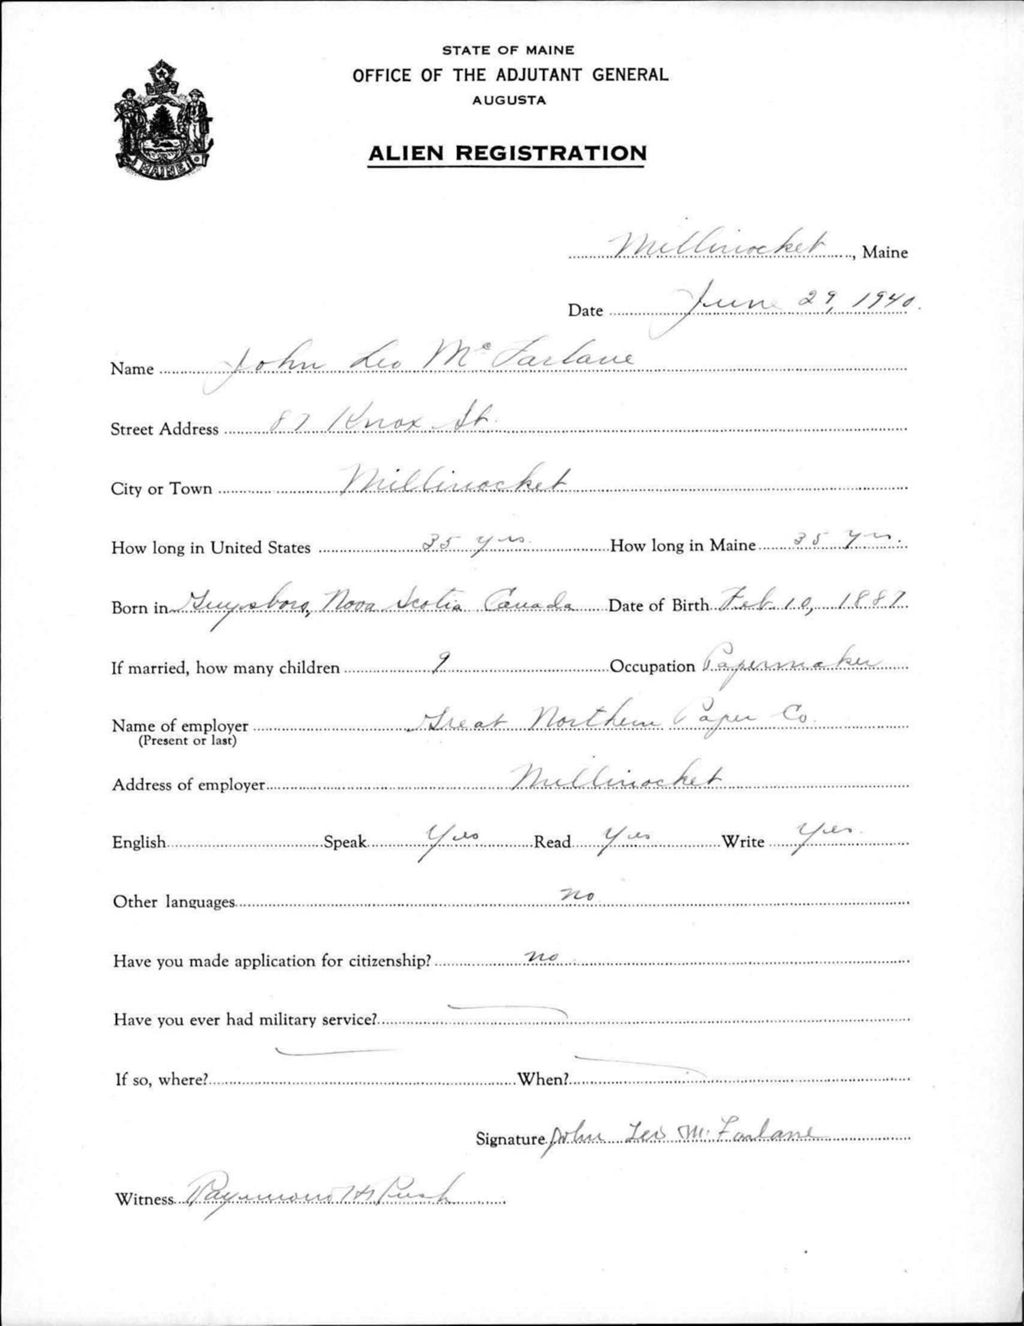 STATE OF MAINE
OFFICE OF THE ADJUTANT GENERAL
AUGUSTA
ALIEN REGISTRATION
MAINE
Millinocket, Maine
Date June 29, 1940.
Name John Leo McFarlane
Street Address 87 Knox St.
City or Town Millinocket
How long in United States 35 yrs. How long in Maine 35 yrs.
Born in Guysboro, Nova Scotia Canada Date of Birth Feb. 10, 1887
If married, how many children 9 Occupation Papermaker
Name of employer Great Northern Paper Co.
(Present or last)
Address of employer Millinocket
English Speak Yes Read Yes Write Yes
Other languages no
Have you made application for citizenship? no
Have you ever had military service?
If so, where? When?
Signature John Leo Mc Farlane
Witness Raymond H Rush